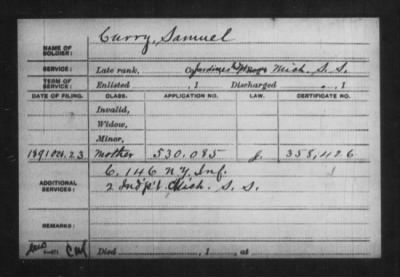 Curry, Samuel
NAME OF SOLDIER:
SERVICE: Late rank, Co. Mich. S. S.
TERM OF SERVICE: Enlisted , 1 Discharged , 1
DATE OF FILING. CLASS. APPLICATION NO. LAW. CERTIFICATE NO.
Invalid,
Widow,
Minor,
1891 Oct. 23 Mother 530,085 J. 358,426
C. 146 N.Y. Inf.
ADDITIONAL SERVICES: 2 Ind'p't Mich. S. S.
REMARKS:
Died , 1 , at